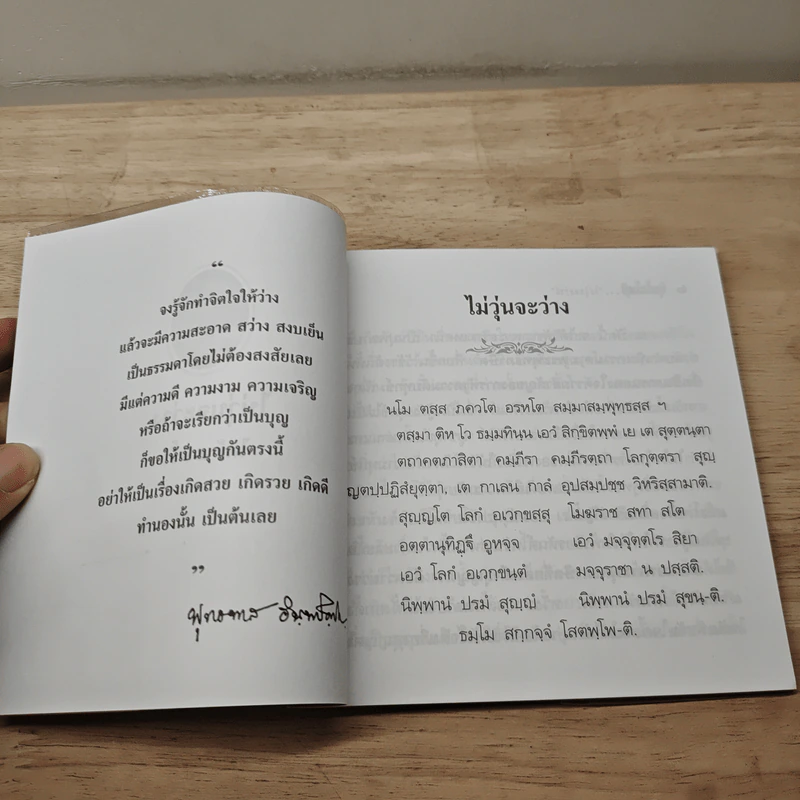 “
จงรู้จักทำจิตใจให้ว่าง
แล้วจะมีความสะอาด สว่าง สงบเย็น
เป็นธรรมดาโดยไม่ต้องสงสัยเลย
มีแต่ความดี ความงาม ความเจริญ
หรือถ้าจะเรียกว่าเป็นบุญ
ก็ขอให้เป็นบุญกันตรงนี้
อย่าให้เป็นเรื่องเกิดสวย เกิดรวย เกิดดี
ทำนองนั้น เป็นต้นเลย
”
พุทธทาส อินฺทปญฺโญ
ไม่วุ่นจะว่าง
นโม ตสฺส ภควโต อรหโต สมฺมาสมฺพุทฺธสฺส ฯ
ตสฺมา ติห โว ธมฺมทินฺน เอวํ สิกฺขิตพฺพํ เย เต สุตฺตนฺตา
ตถาคตภาสิตา คมฺภีรา คมฺภีรตฺถา โลกุตฺตรา สุญฺ
ญตปฺปฏิสํยุตฺตา, เต กาเลน กาลํ อุปสมฺปชฺช วิหริสฺสามาติ.
สุญฺญโต โลกํ อเวกฺขสฺสุ โมฆราช สทา สโต
อตฺตานุทิฏฺฐึ อูหจฺจ เอวํ มจฺจุตฺตโร สิยา
เอวํ โลกํ อเวกฺขนฺตํ มจฺจุราชา น ปสฺสติ.
นิพฺพานํ ปรมํ สุญฺญํ นิพฺพานํ ปรมํ สุขนฺ-ติ.
ธมฺโม สกฺกจฺจํ โสตพฺโพ-ติ.